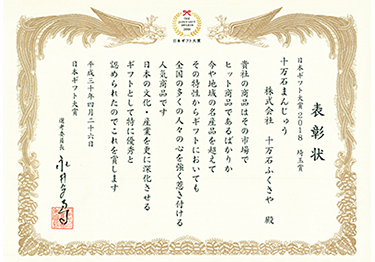 日本ギフト大賞
表彰状
日本ギフト大賞2018 埼玉賞
十万石まんじゅう
株式会社 十万石ふくさや 殿
貴社の商品はその市場で
ヒット商品であるばかりか
今や地域の名産品を超えて
その特性からギフトにおいても
全国の多くの人々の心を強く惹き付ける
人気商品です
日本の文化・産業を更に深化させる
ギフトとして特に優秀と
認められたのでこれを賞します
平成三十年四月二十六日
日本ギフト大賞
選考委員長